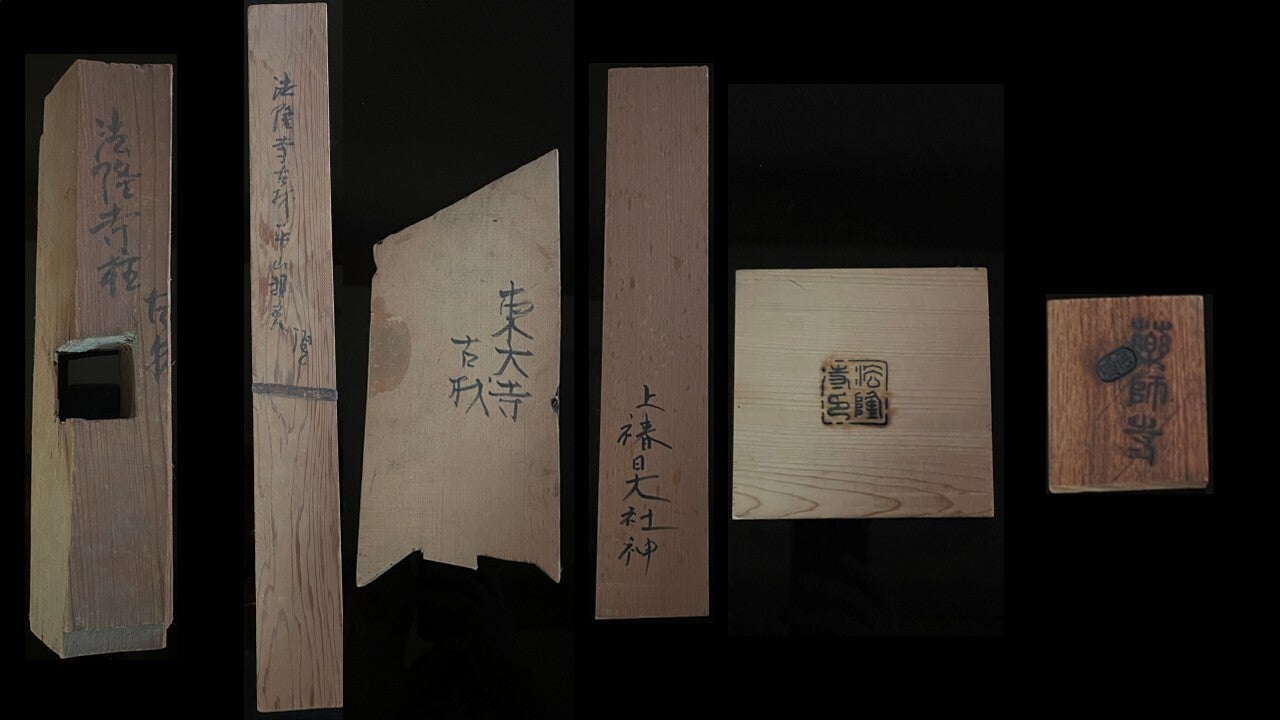 法隆寺柱
古材
法隆寺古材 平山
東大寺
古材
上椿日大社神
法隆寺印
藥師寺